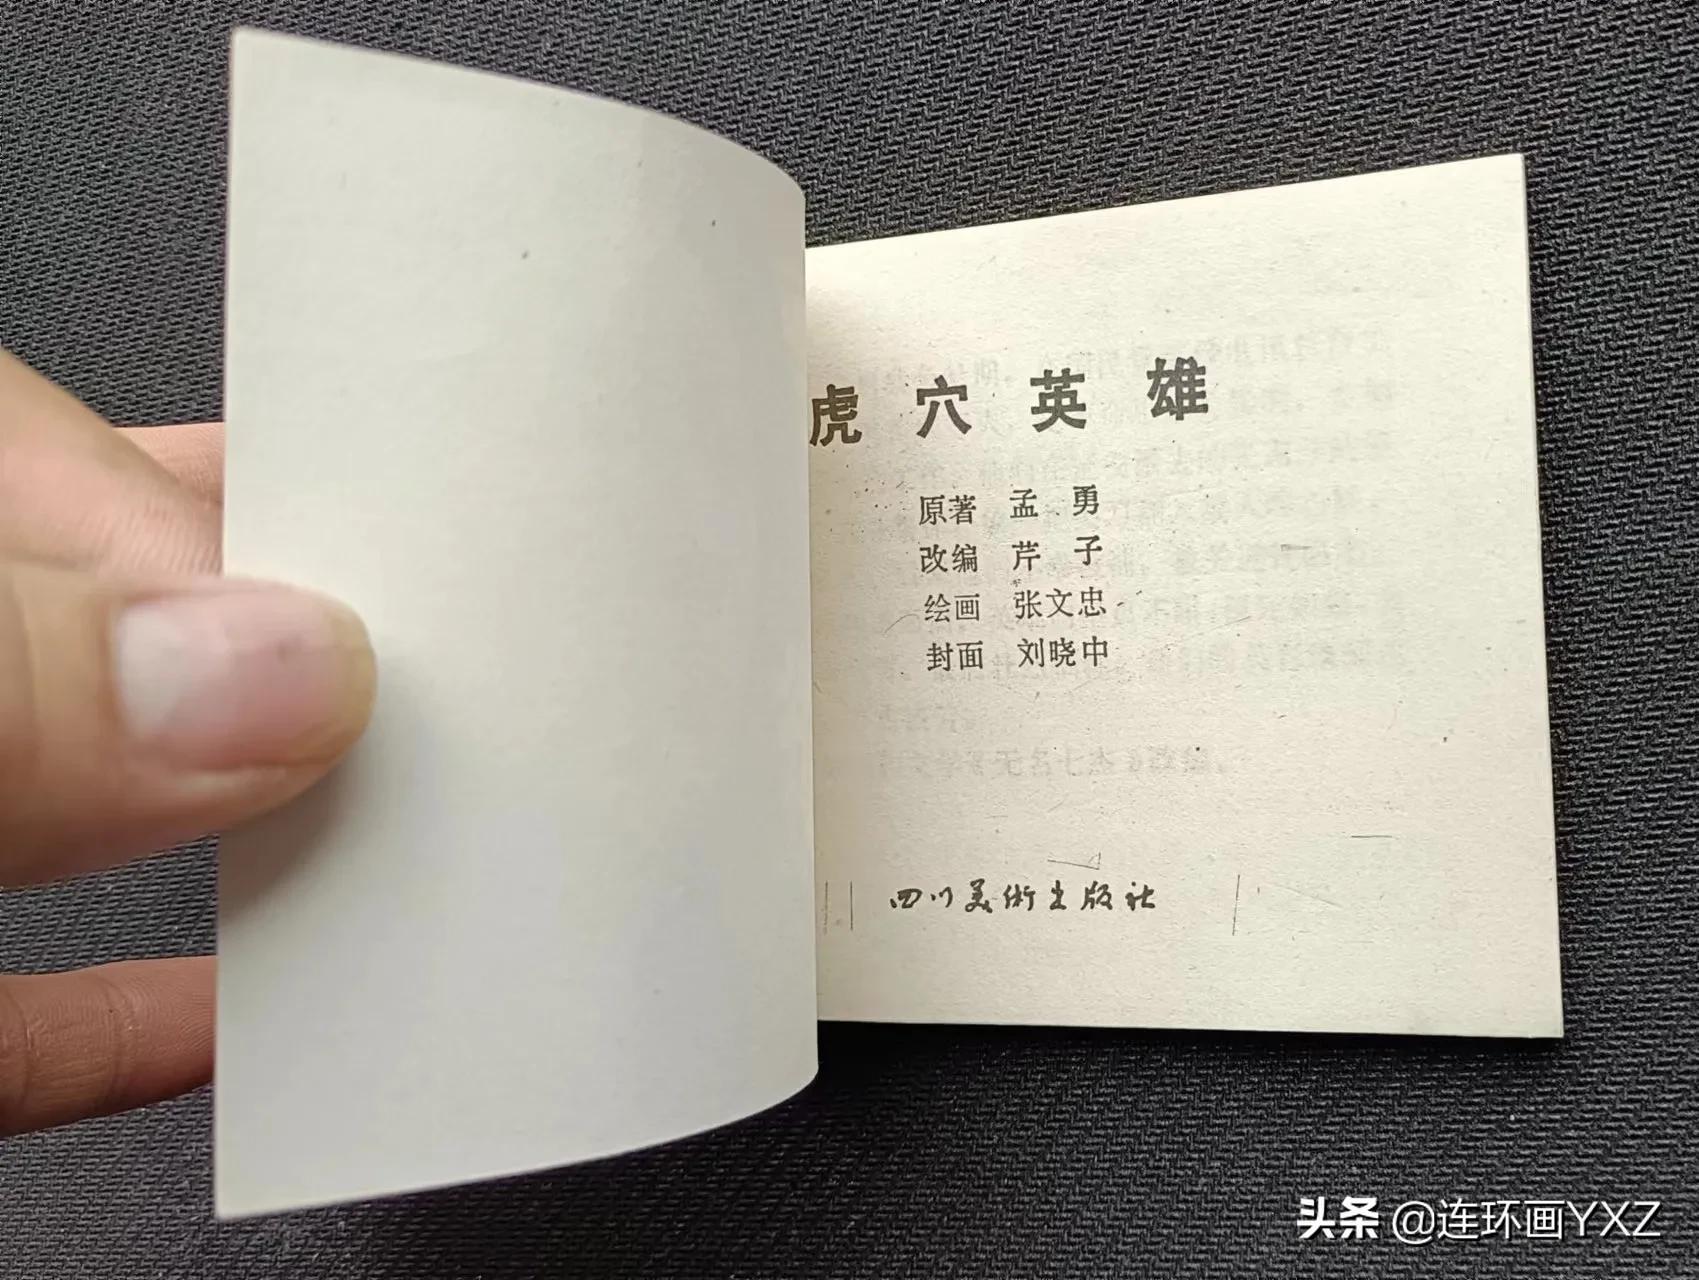 虎穴英雄
原著 孟勇
改编 芹子
绘画 张文忠
封面 刘晓中
四川美術出版社
头条 @连环画YXZ